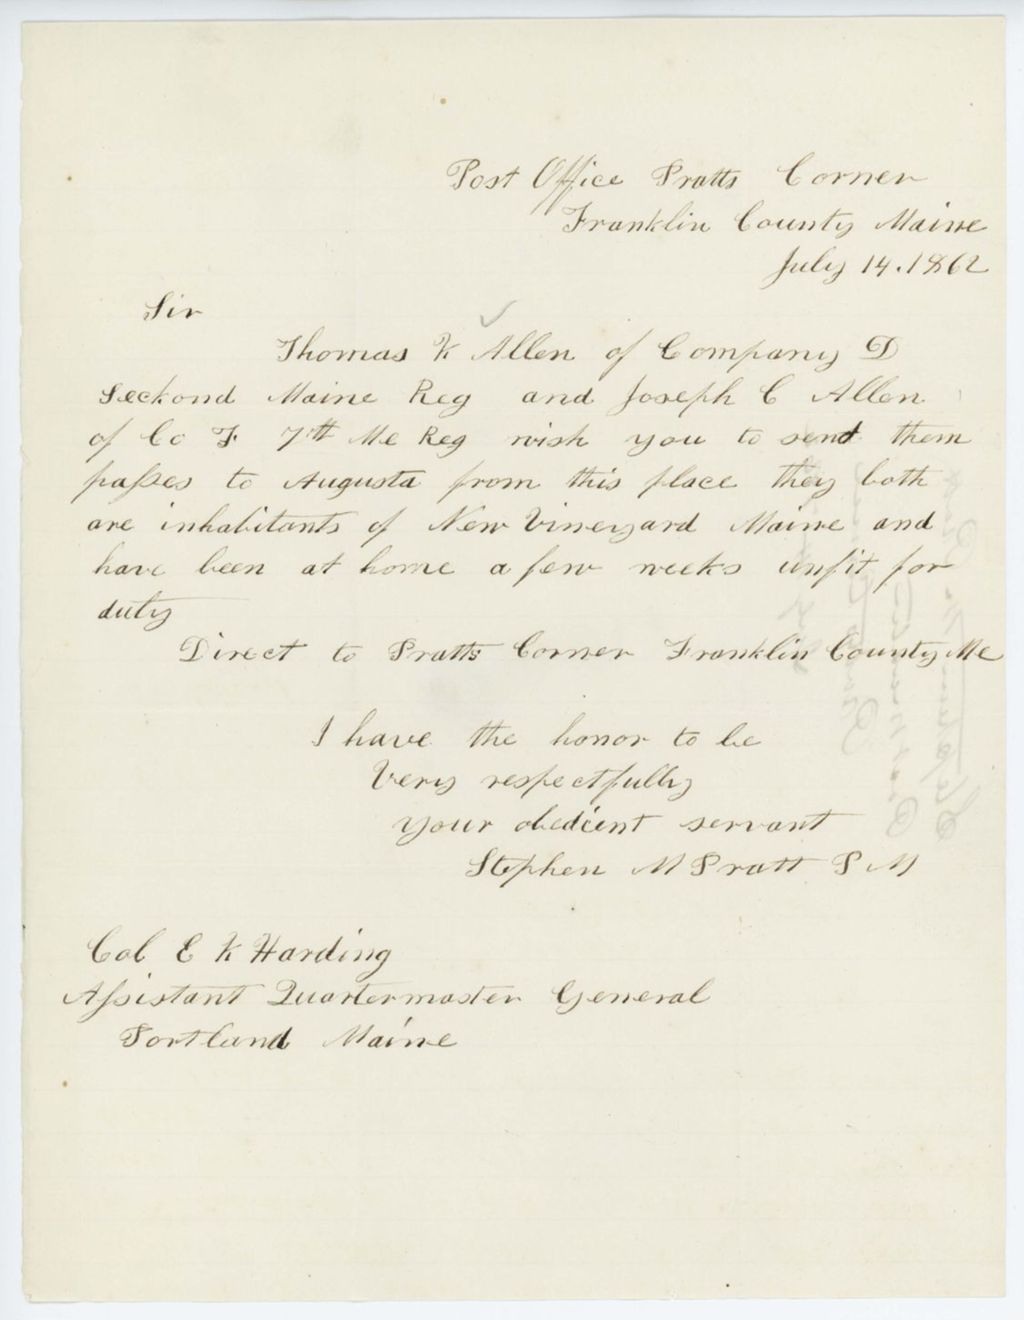 Post Office Pratts Corner
Franklin County Maine
July 14. 1862
Sir
Thomas K Allen of Company D
Seckond Maine Reg and Joseph C Allen
of Co F 7th Me Reg wish you to send them
passes to Augusta from this place they both
are inhabitants of New Vineyard Maine and
have been at home a few weeks unfit for
duty
Direct to Pratts Corner Franklin County Me
I have the honor to be
Very respectfully
your obedient servant
Stephen M Pratt P M
Col E K Harding
Assistant Quartermaster General
Portland Maine